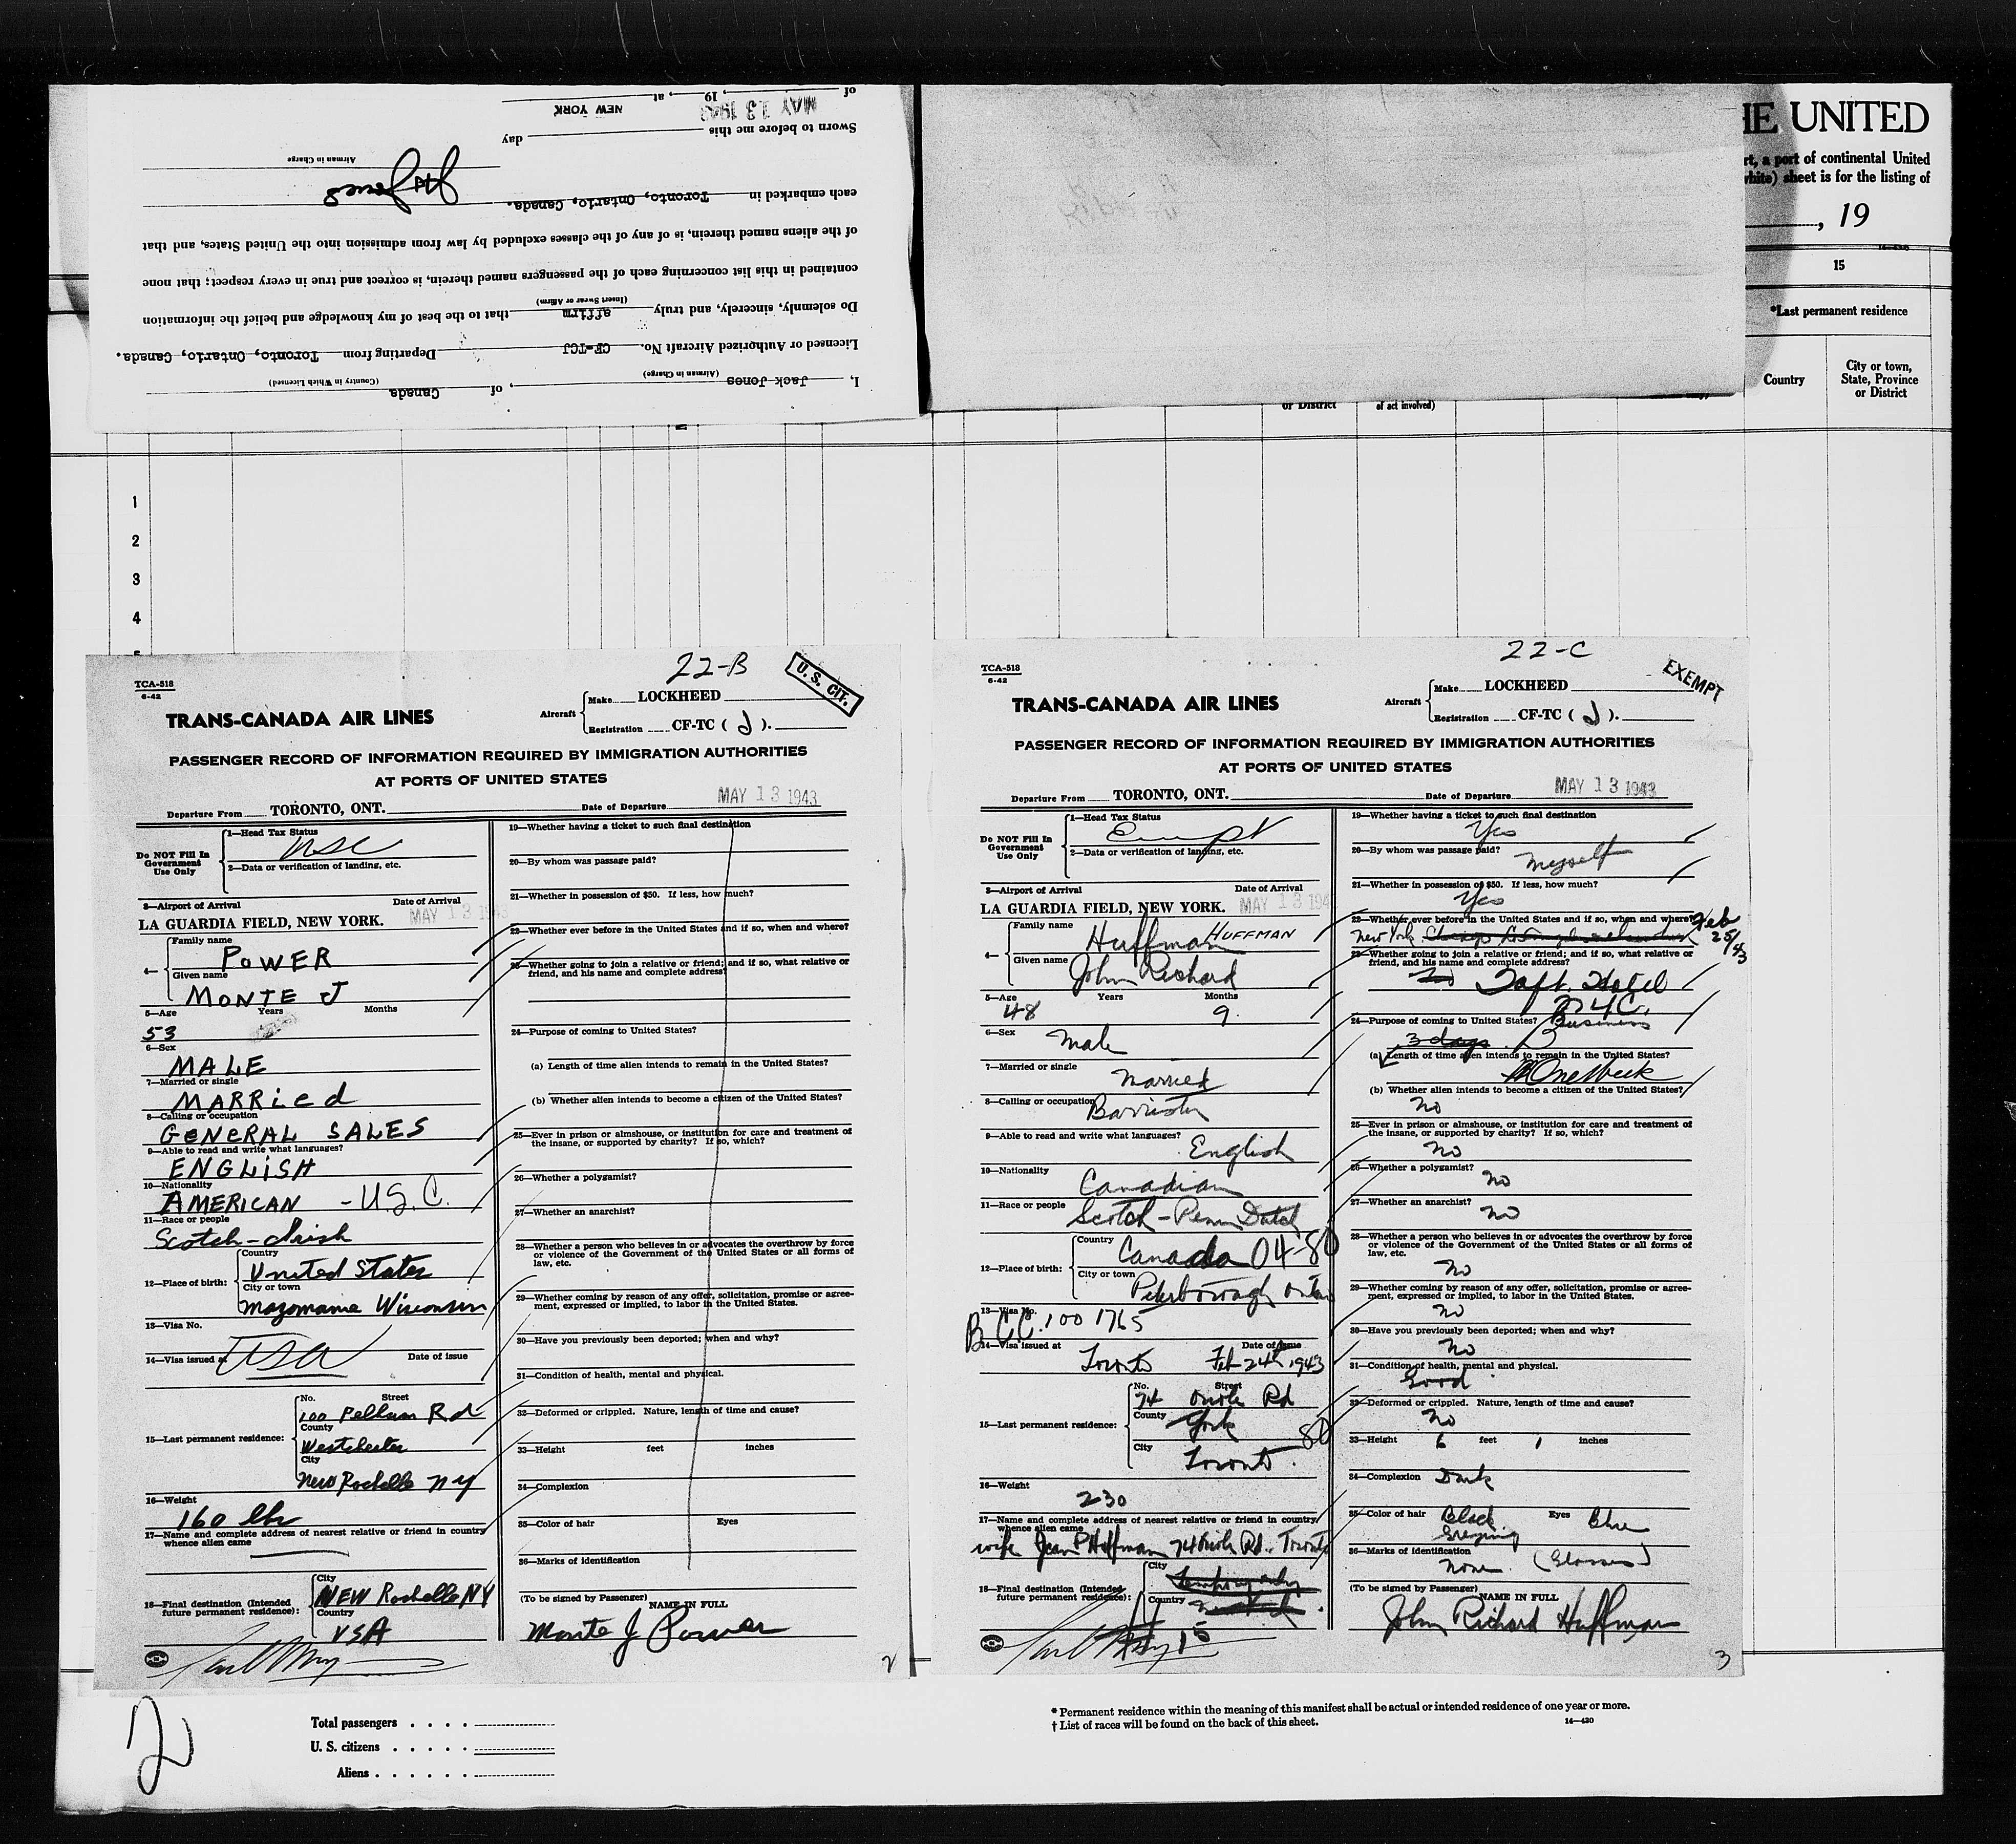 I, Jack Jones, of Canada
(Airman in Charge) (Country in Which Licensed)
Licensed or Authorized Aircraft No. CF-TCJ Departing from Toronto, Ontario, Canada.
Do solemnly, sincerely, and truly affirm that to the best of my knowledge and belief the information
(Insert Swear or Affirm)
contained in this list concerning each of the passengers named therein, is correct and true in every respect; that none
of the aliens named therein, is of any of the classes excluded by law from admission into the United States, and that
each embarked in Toronto, Ontario, Canada.
Airman in Charge
Sworn to before me this day
of , 19 , at NEW YORK
MAY 13 1943
HE UNITED
rt, a port of continental United
white) sheet is for the listing of
, 19
15
*Last permanent residence
Country
City or town,
State, Province
or District
or District
of act involved)
1
2
3
4
22-B
U. S. CIT.
TCA-518
6-42
TRANS-CANADA AIR LINES
Aircraft
Make LOCKHEED
Registration CF-TC ( J ).
PASSENGER RECORD OF INFORMATION REQUIRED BY IMMIGRATION AUTHORITIES
AT PORTS OF UNITED STATES
Departure From TORONTO, ONT. Date of Departure MAY 13 1943
Do NOT Fill In
Government
Use Only
1—Head Tax Status
USC
2—Data or verification of landing, etc.
3—Airport of Arrival Date of Arrival
LA GUARDIA FIELD, NEW YORK. MAY 13 1943
4—
Family name
POWER
Given name
MONTE J
5—Age Years Months
53
6—Sex
MALE
7—Married or single
MARRied
8—Calling or occupation
GENERAL SALES
9—Able to read and write what languages?
ENGLISH
10—Nationality
AMERICAN - U.S.C.
11—Race or people
Scotch-Irish
12—Place of birth:
Country
United States
City or town
Mazomanie Wisconsin
13—Visa No.
14—Visa issued at Date of issue
USA
15—Last permanent residence:
No. Street
100 Pelham Rd
County
Westchester
City
New Rochelle NY
16—Weight
160 lbs
17—Name and complete address of nearest relative or friend in country
whence alien came
18—Final destination (Intended
future permanent residence):
City
NEW Rochelle NY
Country
USA
19—Whether having a ticket to such final destination
20—By whom was passage paid?
21—Whether in possession of $50. If less, how much?
22—Whether ever before in the United States and if so, when and where?
23—Whether going to join a relative or friend; and if so, what relative or
friend, and his name and complete address?
24—Purpose of coming to United States?
(a) Length of time alien intends to remain in the United States?
(b) Whether alien intends to become a citizen of the United States?
25—Ever in prison or almshouse, or institution for care and treatment of
the insane, or supported by charity? If so, which?
26—Whether a polygamist?
27—Whether an anarchist?
28—Whether a person who believes in or advocates the overthrow by force
or violence of the Government of the United States or all forms of
law, etc.
29—Whether coming by reason of any offer, solicitation, promise or agree-
ment, expressed or implied, to labor in the United States.
30—Have you previously been deported; when and why?
31—Condition of health, mental and physical.
32—Deformed or crippled. Nature, length of time and cause?
33—Height feet inches
34—Complexion
35—Color of hair Eyes
36—Marks of identification
(To be signed by Passenger) NAME IN FULL
Monte J Power
2
22-C
EXEMPT
TCA-518
6-42
TRANS-CANADA AIR LINES
Aircraft
Make LOCKHEED
Registration CF-TC ( J ).
PASSENGER RECORD OF INFORMATION REQUIRED BY IMMIGRATION AUTHORITIES
AT PORTS OF UNITED STATES
Departure From TORONTO, ONT. Date of Departure MAY 13 1943
Do NOT Fill In
Government
Use Only
1—Head Tax Status
Exempt
2—Data or verification of landing, etc.
3—Airport of Arrival Date of Arrival
LA GUARDIA FIELD, NEW YORK. MAY 13 194
4—
Family name
Huffman HUFFMAN
Given name
John Richard
5—Age Years Months
48 9.
6—Sex
Male
7—Married or single
Married
8—Calling or occupation
Barrister
9—Able to read and write what languages?
English
10—Nationality
Canadian
11—Race or people
Scotch-Penn Dutch
12—Place of birth:
Country
Canada 04-80
City or town
Peterborough Ontario
13—Visa No.
B.C.C. 100 1765
14—Visa issued at Date of issue
Toronto Feb 24th 1943
15—Last permanent residence:
No. Street
74 Oriole Rd
County
York
80
City
Toronto.
16—Weight
230
17—Name and complete address of nearest relative or friend in country
whence alien came
wife Jean P Huffman 74 Oriole Rd. Toronto
18—Final destination (Intended
future permanent residence):
City
Country
19—Whether having a ticket to such final destination
Yes
20—By whom was passage paid?
Myself
21—Whether in possession of $50. If less, how much?
Yes
22—Whether ever before in the United States and if so, when and where?
New York Feb 25/43
23—Whether going to join a relative or friend; and if so, what relative or
friend, and his name and complete address?
No Taft. Hotel
NYC.
24—Purpose of coming to United States? Business
3 days
(a) Length of time alien intends to remain in the United States?
One Week
(b) Whether alien intends to become a citizen of the United States?
No
25—Ever in prison or almshouse, or institution for care and treatment of
the insane, or supported by charity? If so, which?
No
26—Whether a polygamist?
No
27—Whether an anarchist?
No
28—Whether a person who believes in or advocates the overthrow by force
or violence of the Government of the United States or all forms of
law, etc.
No
29—Whether coming by reason of any offer, solicitation, promise or agree-
ment, expressed or implied, to labor in the United States.
No
30—Have you previously been deported; when and why?
No
31—Condition of health, mental and physical.
Good
32—Deformed or crippled. Nature, length of time and cause?
No
33—Height 6 feet 1 inches
34—Complexion Dark
35—Color of hair Black Greying Eyes Blue
36—Marks of identification
None (Glasses)
(To be signed by Passenger) NAME IN FULL
John Richard Huffman
3
2
Total passengers
U. S. citizens
Aliens
* Permanent residence within the meaning of this manifest shall be actual or intended residence of one year or more.
† List of races will be found on the back of this sheet.
14—430